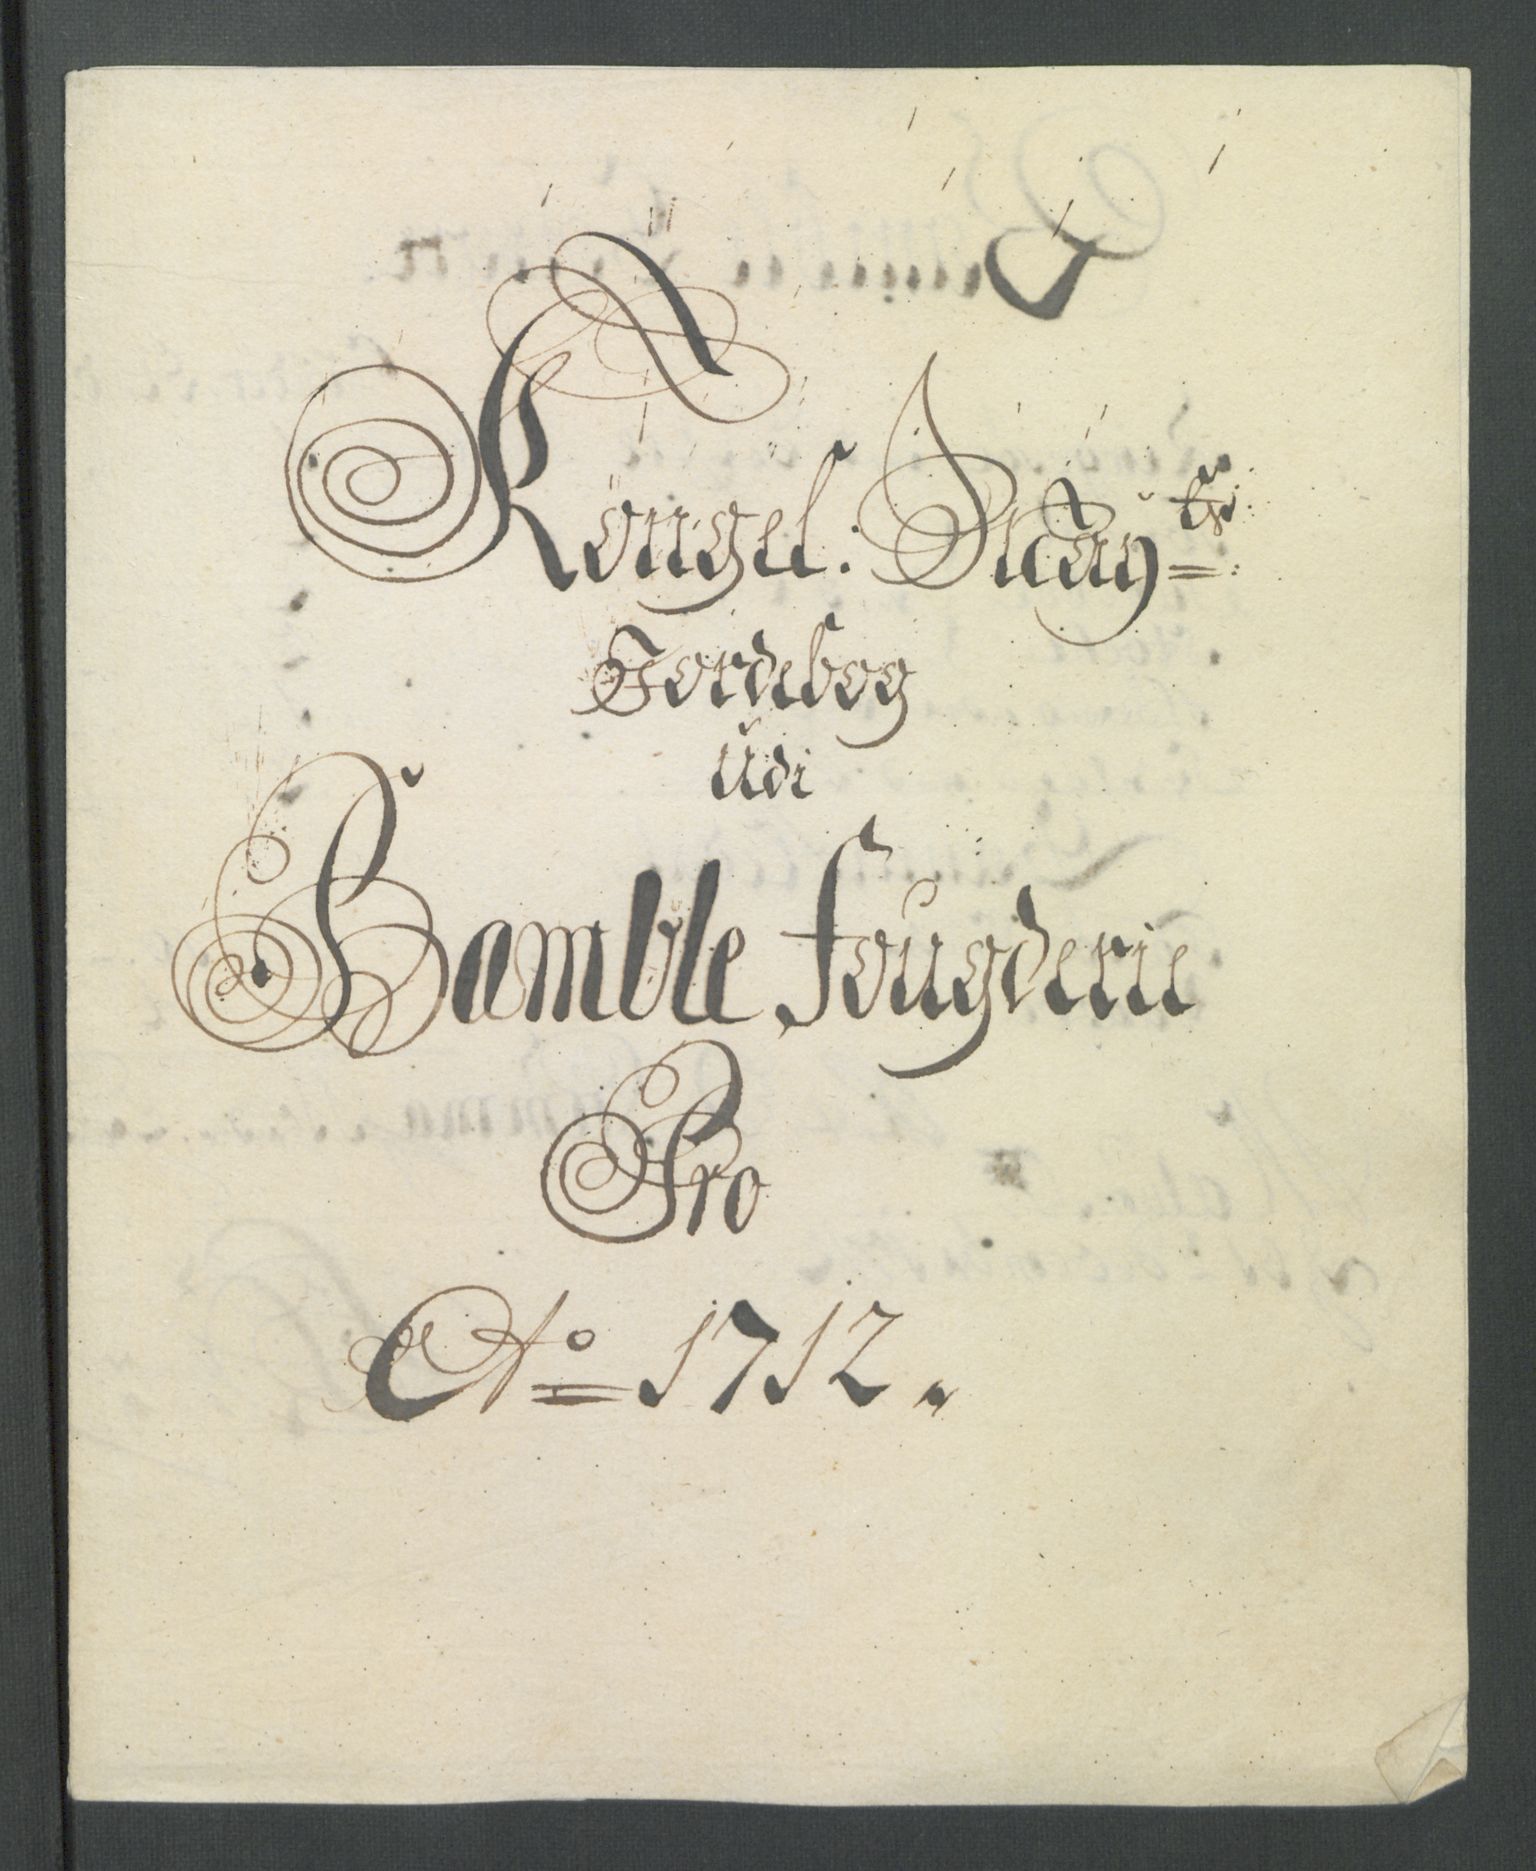 Kongel: May:ts
Jordebog
udi
Bamble fougderie
Pro
Ao 1712.